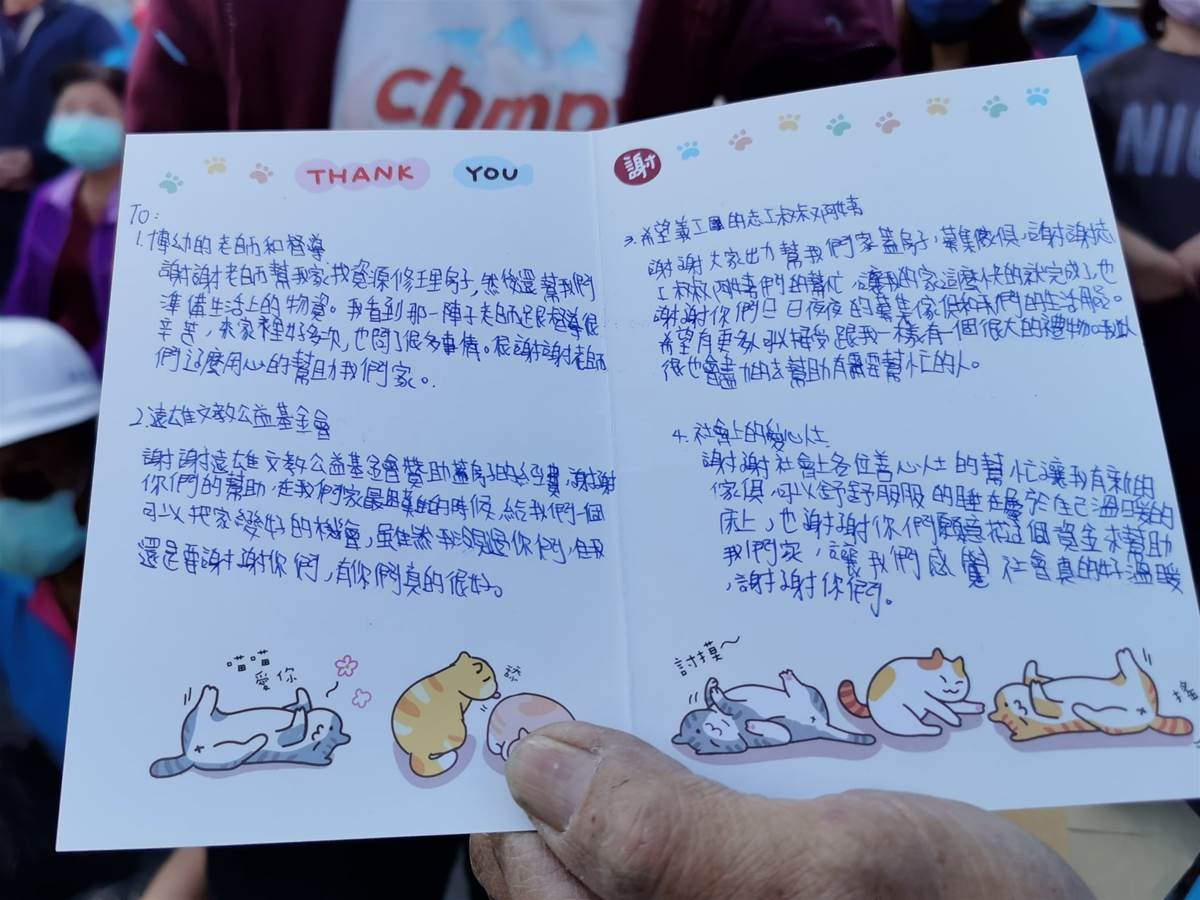 chmp
NIC
THANK YOU
謝
To:
1. 博幼的老師和督導
謝謝老師幫我家找資源修理房子,然後還幫我們
準備生活上的物資。我看到那一陣子老師跟督導很
辛苦,來家裡好多次,也問了很多事情。很謝謝老師
們這麼用心的幫助我們家。
2. 遠雄文教公益基金會
謝謝遠雄文教公益基金會贊助蓋房子的經費,謝謝
你們的幫助,在我們家最困難的時候,給我們一個
可以把家變好的機會,雖然我沒見過你們,但我
還是要謝謝你們,有你們真的很好。
3. 希望義工團的志工叔叔阿姨
謝謝大家出力幫我們家蓋房子,募集傢俱,謝謝志
工叔叔阿姨們的幫忙,讓我的家這麼快的就完成了,也
謝謝你們日日夜夜的募集傢俱和我們的生活用品。
希望有更多 接受跟我一樣有一個很大的禮物
後也會盡力的去幫助有需要幫忙的人。
4. 社會上的愛心人士
謝謝社會上各位善心人士的幫忙讓我有新的
傢俱,可以舒舒服服的睡在屬於自己溫暖的
床上,也謝謝你們願意花這個資金來幫助
我們家,讓我們感覺社會真的好溫暖
,謝謝你們。
喵喵
愛你
討摸~